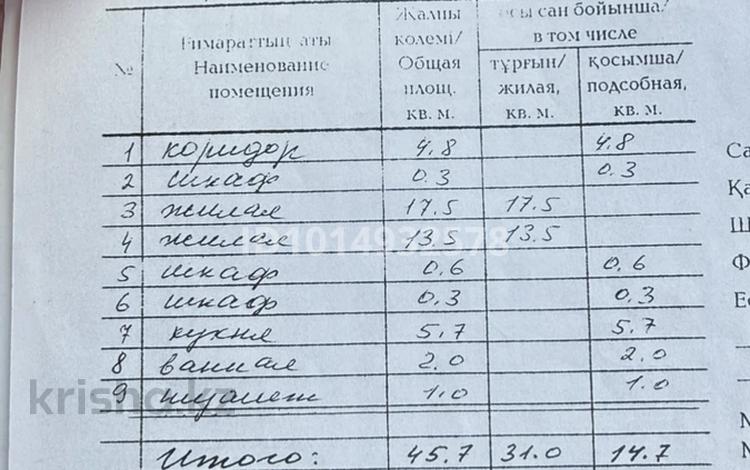 Жалпы көлемі/ Общая площ. кв. м.
осы сан бойынша/ в том числе
№ Ғимараттың аты Наименование помещения
тұрғын/ жилая, кв. м.
қосымша/ подсобная, кв. м.
1 коридор 4.8 4.8
2 шкаф 0.3 0.3
3 жилая 17.5 17.5
4 жилая 13.5 13.5
5 шкаф 0.6 0.6
6 шкаф 0.3 0.3
7 кухня 5.7 5.7
8 ванная 2.0 2.0
9 туалет 1.0 1.0
Итого: 45.7 31.0 14.7
krisha.kz
Са
Қа
Ш
Ф
Ес